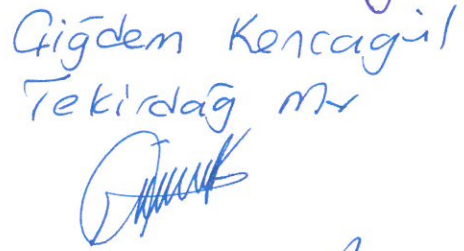 Çiğdem Kencagül
Tekirdağ Mv